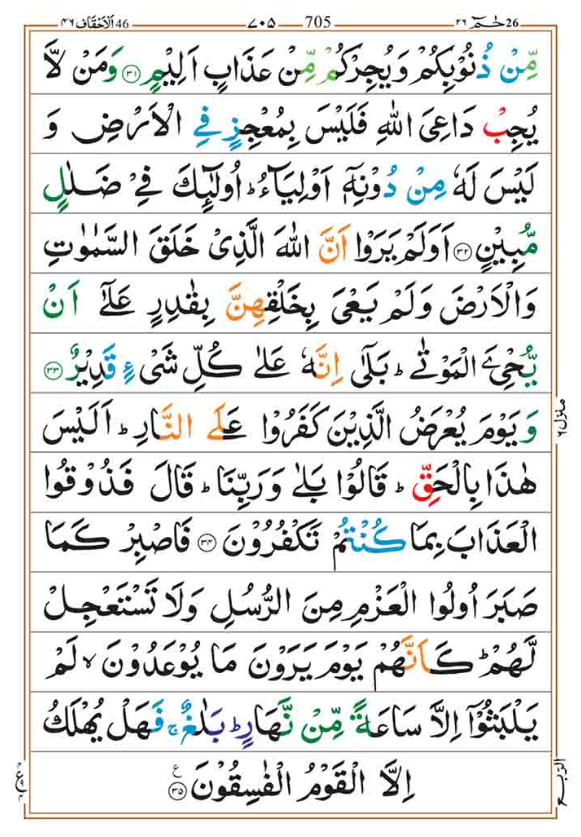 حٰمٓ 26 ٢٦ 705 ٧٠٥ اَلْاَحْقَاف 46 ٤٦
مِّنْ ذُنُوْبِكُمْ وَيُجِرْكُمْ مِّنْ عَذَابٍ اَلِيْمٍ ۝٣١ وَمَنْ لَّا
يُجِبْ دَاعِيَ اللّٰهِ فَلَيْسَ بِمُعْجِزٍ فِي الْاَرْضِ وَ
لَيْسَ لَهٗ مِنْ دُوْنِهٖٓ اَوْلِيَآءُ ؕ اُولٰٓئِكَ فِيْ ضَلٰلٍ
مُّبِيْنٍ ۝٣٢ اَوَلَمْ يَرَوْا اَنَّ اللّٰهَ الَّذِيْ خَلَقَ السَّمٰوٰتِ
وَالْاَرْضَ وَلَمْ يَعْيَ بِخَلْقِهِنَّ بِقٰدِرٍ عَلٰٓى اَنْ
يُّحْيِۦَ الْمَوْتٰى ؕ بَلٰٓى اِنَّهٗ عَلٰى كُلِّ شَيْءٍ قَدِيْرٌ ۝٣٣
وَيَوْمَ يُعْرَضُ الَّذِيْنَ كَفَرُوْا عَلَى النَّارِ ؕ اَلَيْسَ
هٰذَا بِالْحَقِّ ؕ قَالُوْا بَلٰى وَرَبِّنَا ؕ قَالَ فَذُوْقُوا
الْعَذَابَ بِمَا كُنْتُمْ تَكْفُرُوْنَ ۝٣٤ فَاصْبِرْ كَمَا
صَبَرَ اُولُوا الْعَزْمِ مِنَ الرُّسُلِ وَلَا تَسْتَعْجِلْ
لَّهُمْ ؕ كَاَنَّهُمْ يَوْمَ يَرَوْنَ مَا يُوْعَدُوْنَ ۙ لَمْ
يَلْبَثُوْٓا اِلَّا سَاعَةً مِّنْ نَّهَارٍ ؕ بَلٰغٌ ۚ فَهَلْ يُهْلَكُ
اِلَّا الْقَوْمُ الْفٰسِقُوْنَ ۝٣٥ ع
منزل ٦
الربع